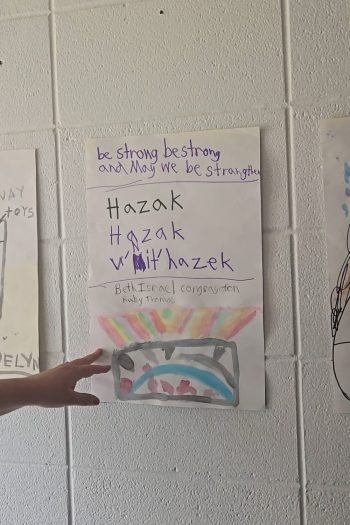 WAY
toys
ELYN
be strong be strong
and May we be strangthen
Hazak
Hazak
v'nit'hazek
Beth Israel congregation
Ruby Thomas